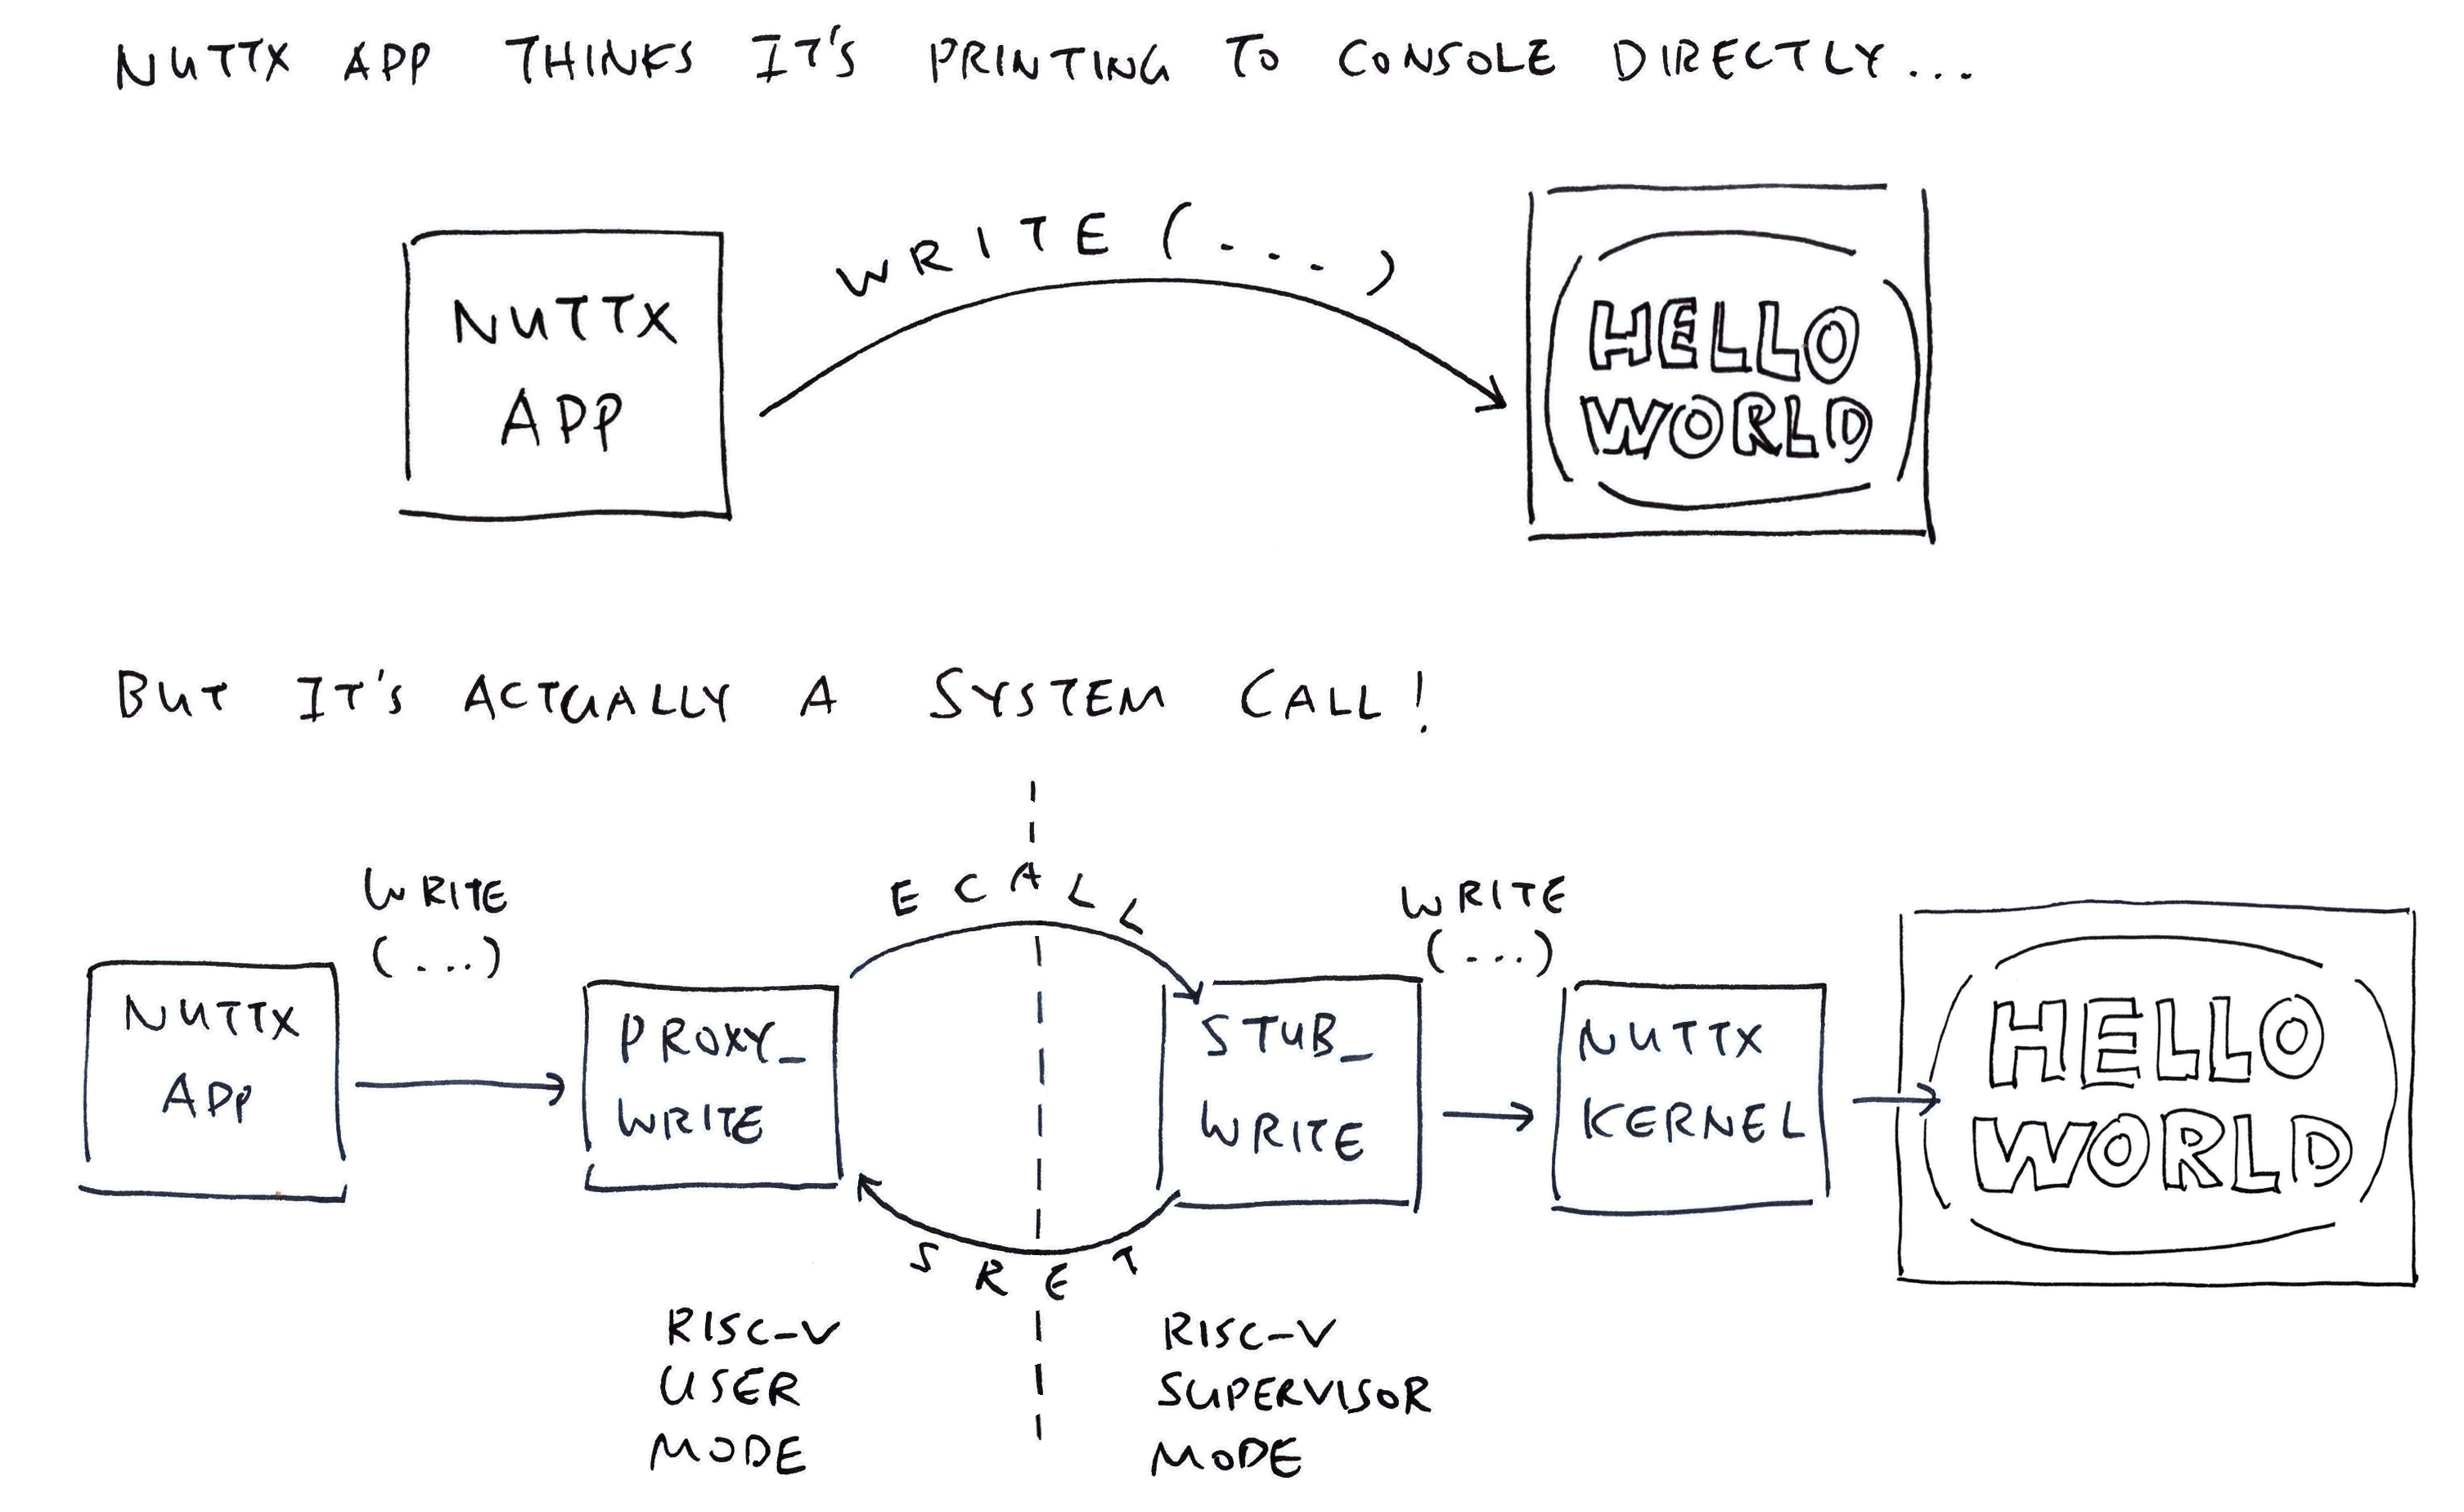 NUTTX APP THINKS IT'S PRINTING TO CONSOLE DIRECTLY...
NUTTX
APP
WRITE (...)
HELLO
WORLD
BUT IT'S ACTUALLY A SYSTEM CALL!
NUTTX
APP
WRITE
(...)
PROXY_
WRITE
ECALL
SRET
STUB_
WRITE
WRITE
(...)
NUTTX
KERNEL
HELLO
WORLD
RISC-V
USER
MODE
RISC-V
SUPERVISOR
MODE